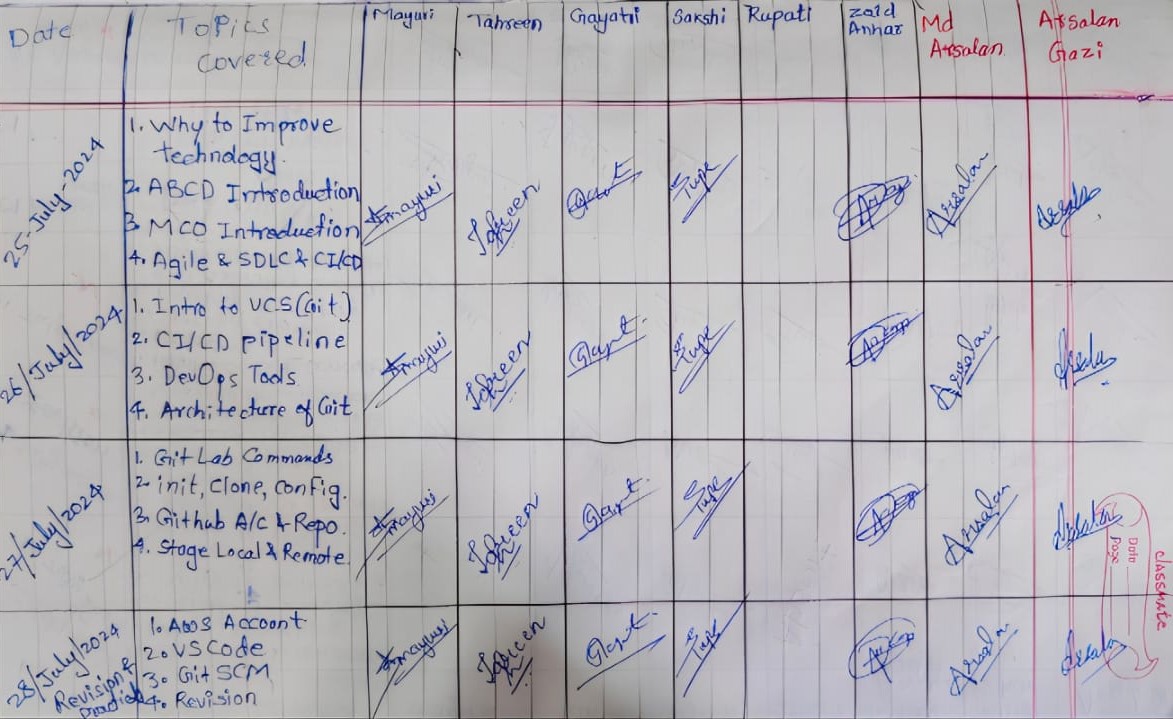 Date
Topics
Covered
Mayuri
Tahreen
Gayatri
Sakshi
Rupati
Zaid
Anhar
Md
Arsalan
Arsalan
Gazi
25-July-2024
1. Why to Improve
technology.
2. ABCD Introduction
3 MCO Introduction
4. Agile & SDLC & CI/CD
Mayuri
Tahreen
Tupe
Arsalan
Arsalan
26/July/2024
1. Intro to VCS(Git)
2. CI/CD pipeline
3. DevOps Tools
4. Architecture of Git
Mayuri
Tahreen
Tupe
Arsalan
Arsalan
27/July/2024
1. Git Lab Commands
2. init, Clone, config.
3. Github A/C & Repo.
4. Stage Local & Remote
Mayuri
Tahreen
Tupe
Arsalan
Arsalan
classmate
Date
Page
28/July/2024
Revision &
Practical
1. AWS Account
2. VS Code
3. Git SCM
4. Revision
Mayuri
Tahreen
Tupe
Arsalan
Arsalan